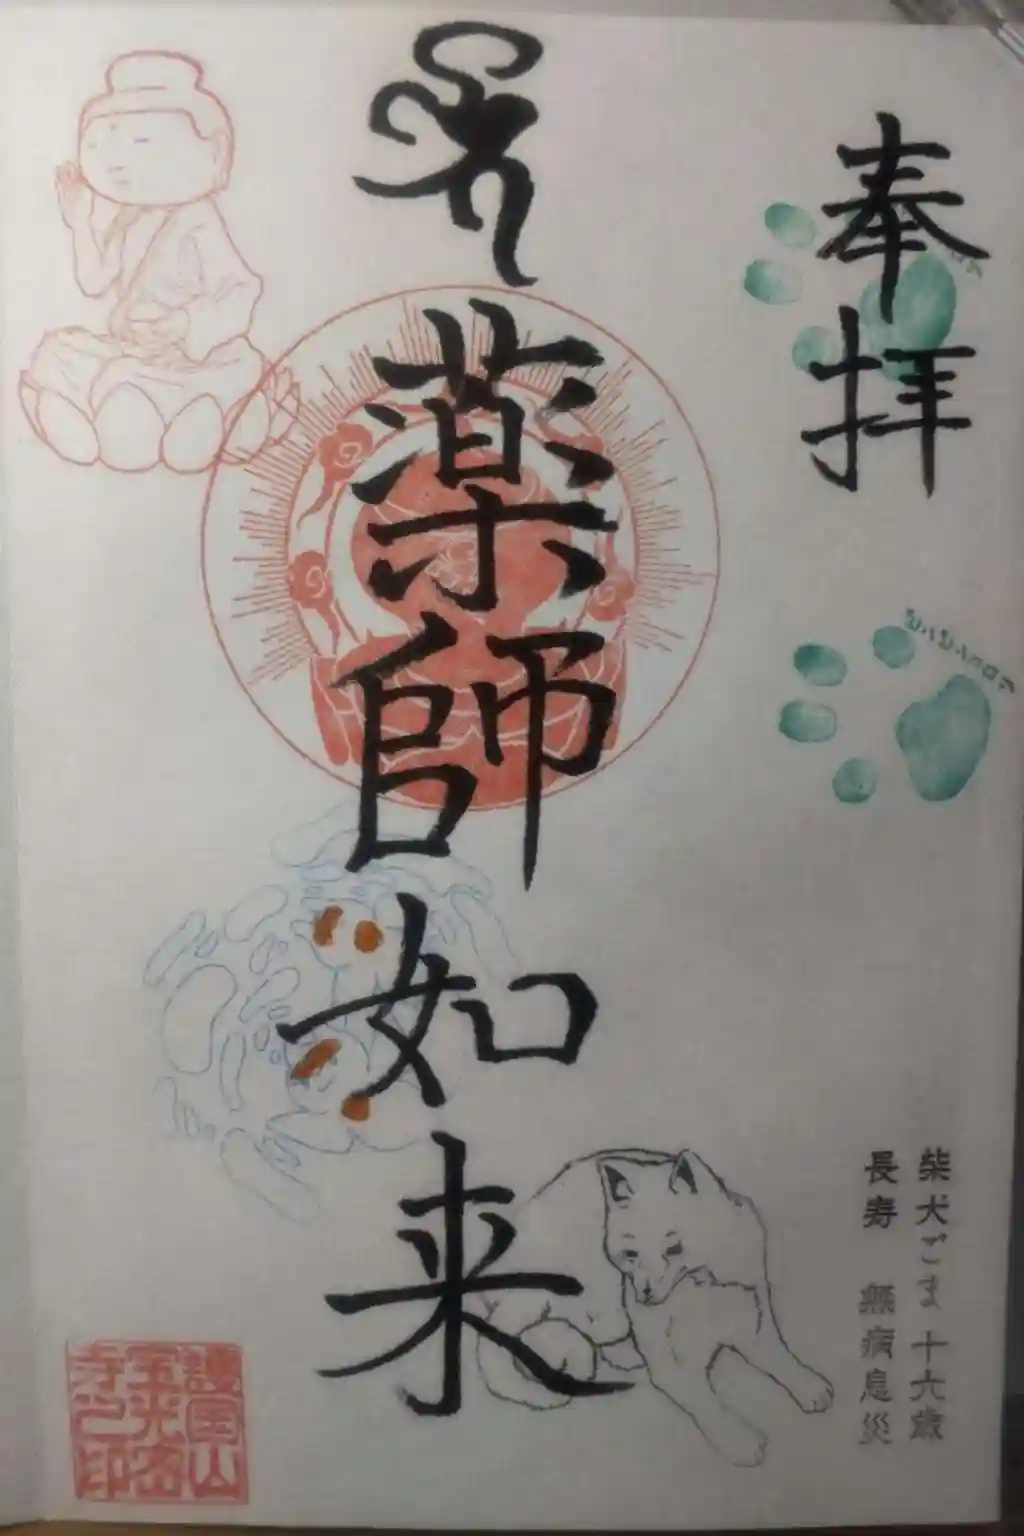 奉拝
薬師如来
柴犬ごま 十六歳
長寿 無病息災
護国山
寺之印